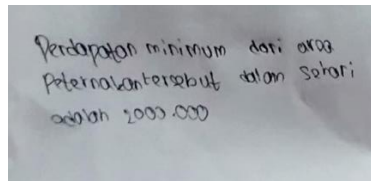 Pendapatan minimum dari area
Peternakan tersebut dalam sehari
adalah 2000.000